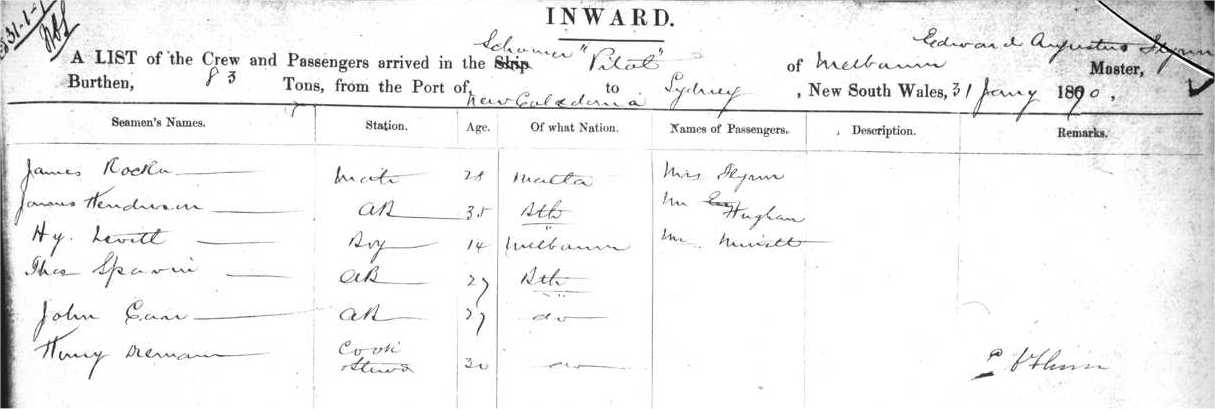 INWARD.
A LIST of the Crew and Passengers arrived in the Ship Schooner "Pilot" of Melbourne Edward Augustus Flynn Master,
Burthen, 83 Tons, from the Port of New Caledonia to Sydney, New South Wales, 31 Jany 1890,
Seamen's Names. Station. Age. Of what Nation. Names of Passengers. Description. Remarks.
James Mate 28 Malta Mrs Flynn
James Henderson AB 35 Mr Hughan
Hy. Levitt Boy 14 Melbourne Mr
Thos AB 27
John AB 27 do
Henry Cook Steward 30 do